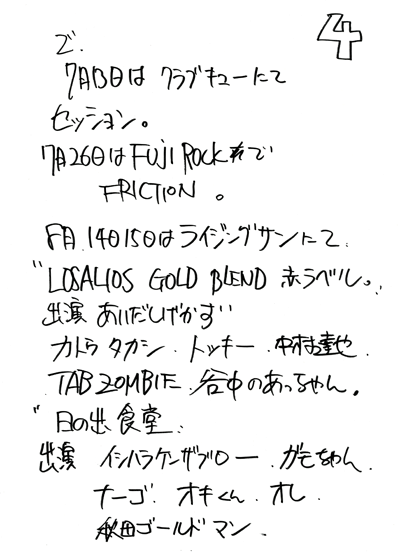 4
で.
7月13日は クラブキューにて
セッション。
7月26日は FUJI ROCK で
FRICTION 。
8月.14日15日は ライジングサンにて.
"LOSALIOS GOLD BLEND 赤ラベル。
出演 あいだしげかず"
カトウ タカシ. トッキー. 中村達也.
TAB ZOMBIE. 谷中のあっちゃん.
"日の出 食堂.
出演 イシハラケンザブロー. ガモちゃん.
ナーゴ. オキくん. オレ.
秋田ゴールドマン.